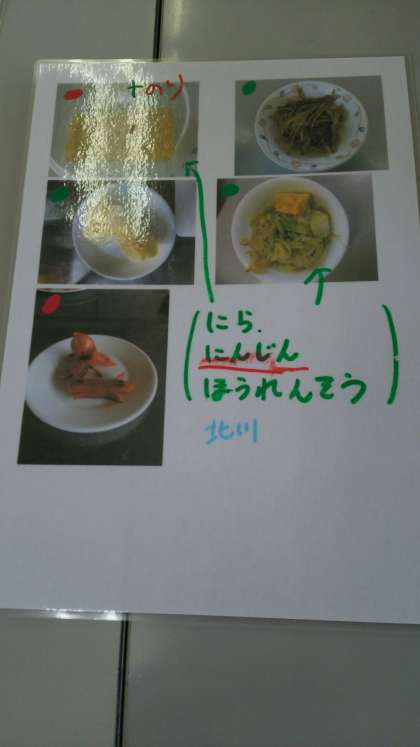 +のり
にら.
にんじん
ほうれんそう
北川